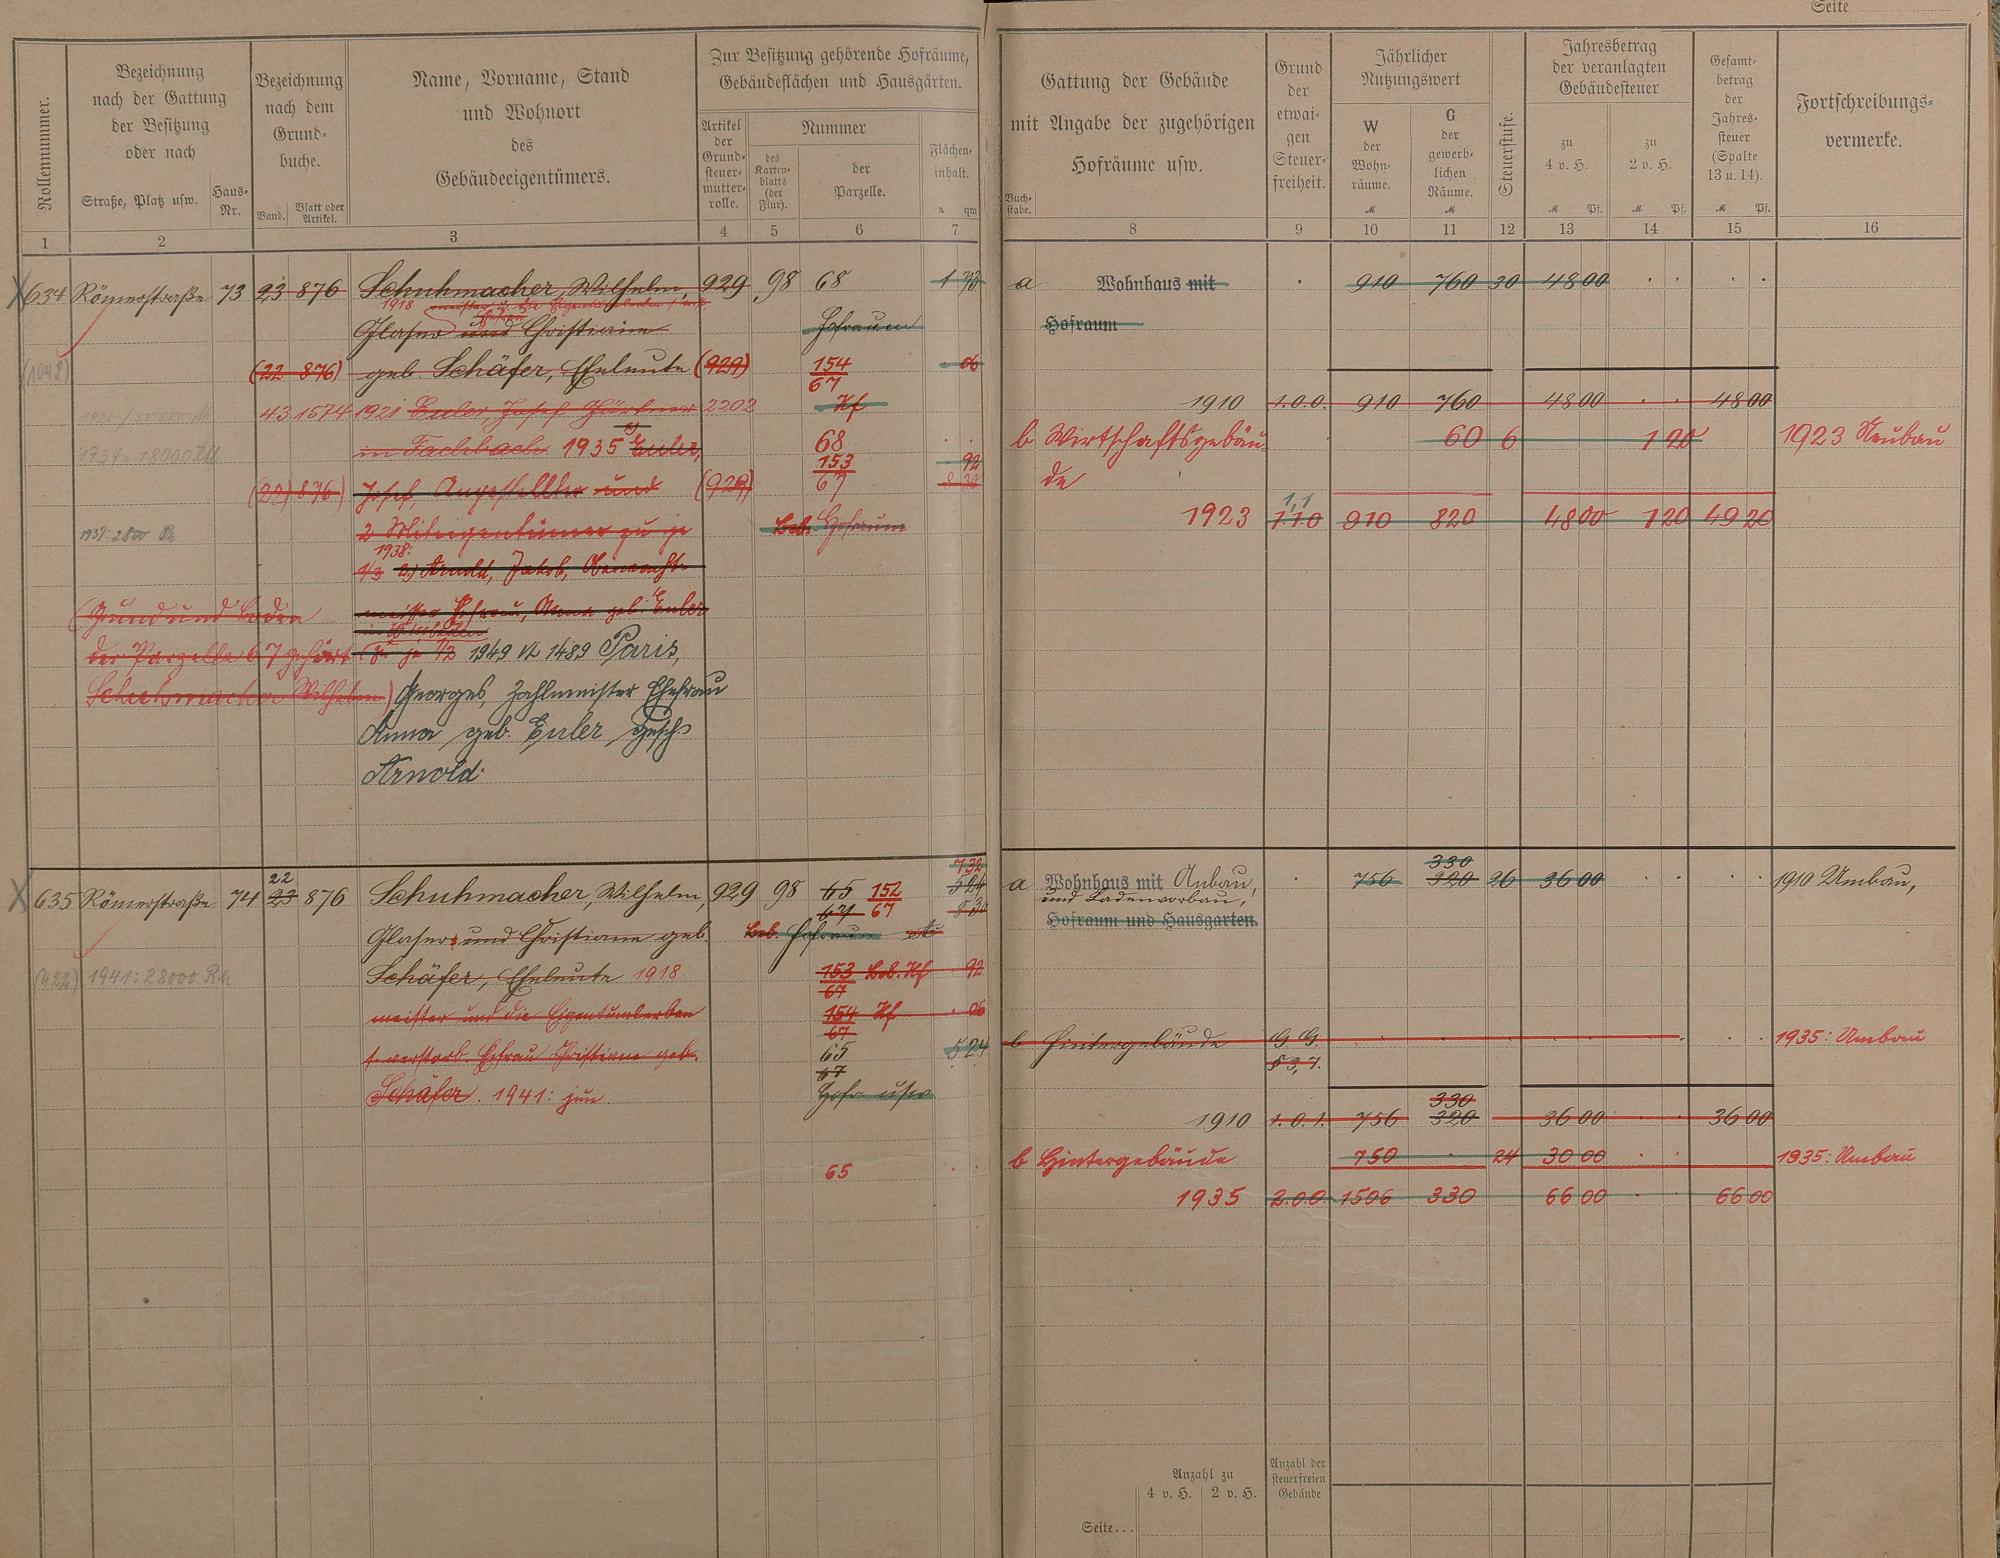 Seite
Rollennummer.
Bezeichnung
nach der Gattung
der Besitzung
oder nach
Straße, Platz usw.
Haus-
Nr.
Bezeichnung
nach dem
Grund-
buche.
Band.
Blatt oder
Artikel.
Name, Vorname, Stand
und Wohnort
des
Gebäudeeigentümers.
Zur Besitzung gehörende Hofräume,
Gebäudeflächen und Hausgärten.
Artikel
der
Grund-
steuer-
mutter-
rolle.
Nummer
des
Karten-
blatts
(der
Flur).
der
Parzelle.
Flächen-
inhalt.
a qm
1 2 3 4 5 6 7
634 Römerstraße 73 23 876 Schuhmacher, Wilhelm, 929 98 68
1918 meister u. die
Glaser und Christiane Hofraum
(1048) (22 876) geb. Schäfer, Eheleute (929) 154 06
67
43 1574 1921 Euler Josef Gärtner 2202 Hf
in Fachbach 1935 Euler, 68
1934 = 18000 RM 153 92
(22) 876) Josef, Angestellter und (929) 67
1937: 2800 2 Miteigentümer zu je Beb. Hofraum
1938:
1/3 2.) Arnold, Jakob, Oberwacht-
(Grund und Boden meister Ehefrau, Anna geb. Euler
in Wiesbaden
der Parzelle 67 gehört (zu je 1/2 1949 1489 Paris,
Schuhmacher Wilhelm) Georges, Zahlmeister Ehefrau
Anna geb. Euler gesch.
Arnold.
732
22
635 Römerstraße 74 23 876 Schuhmacher, Wilhelm, 929 98 65 152 524
67
Glaser und Christiane geb. Beb. Hofraum
(422) 1941: 28000 Schäfer, Eheleute 1918: 153 Beb. Hf 92
67
meister und die Eigentumserben 154 Hf 06
67
s. verstorb. Ehefrau Christiane geb. 65 524
67
Schäfer. 1941: jun. Hofr. usw
65
Buch-
stabe.
Gattung der Gebäude
mit Angabe der zugehörigen
Hofräume usw.
Grund
der
etwai-
gen
Steuer-
freiheit.
Jährlicher
Nutzungswert
W
der
Wohn-
räume.
M
G
der
gewerb-
lichen
Räume.
M
Steuerstufe.
Jahresbetrag
der veranlagten
Gebäudesteuer
zu
4 v. H.
M Pf.
zu
2 v. H.
M Pf.
Gesamt-
betrag
der
Jahres-
steuer
(Spalte
13 u. 14).
M Pf.
Fortschreibungs-
vermerke.
8 9 10 11 12 13 14 15 16
a Wohnhaus mit 910 760 30 48 00
Hofraum
1910 1.0.0. 910 760 48 00 48 00
b Wirtschaftsgebäu- 60 6 1 20 1923 Neubau
de
1,1
1923 1.1.0 910 820 48 00 1 20 49 20
330
a Wohnhaus mit Anbau, 756 320 26 36 00 1910 Umbau,
und Ladenvorbau,
Hofraum und Hausgarten.
b Hintergebäude G. G. 1935: Umbau
§ 3,7.
330
1910 1.0.1. 756 320 36 00 36 00
b Hintergebäude 750 24 30 00 1935: Umbau
1935 2.0.0 1506 330 66 00 66 00
Anzahl zu
4 v. H. 2 v. H.
Anzahl der
steuerfreien
Gebäude
Seite...